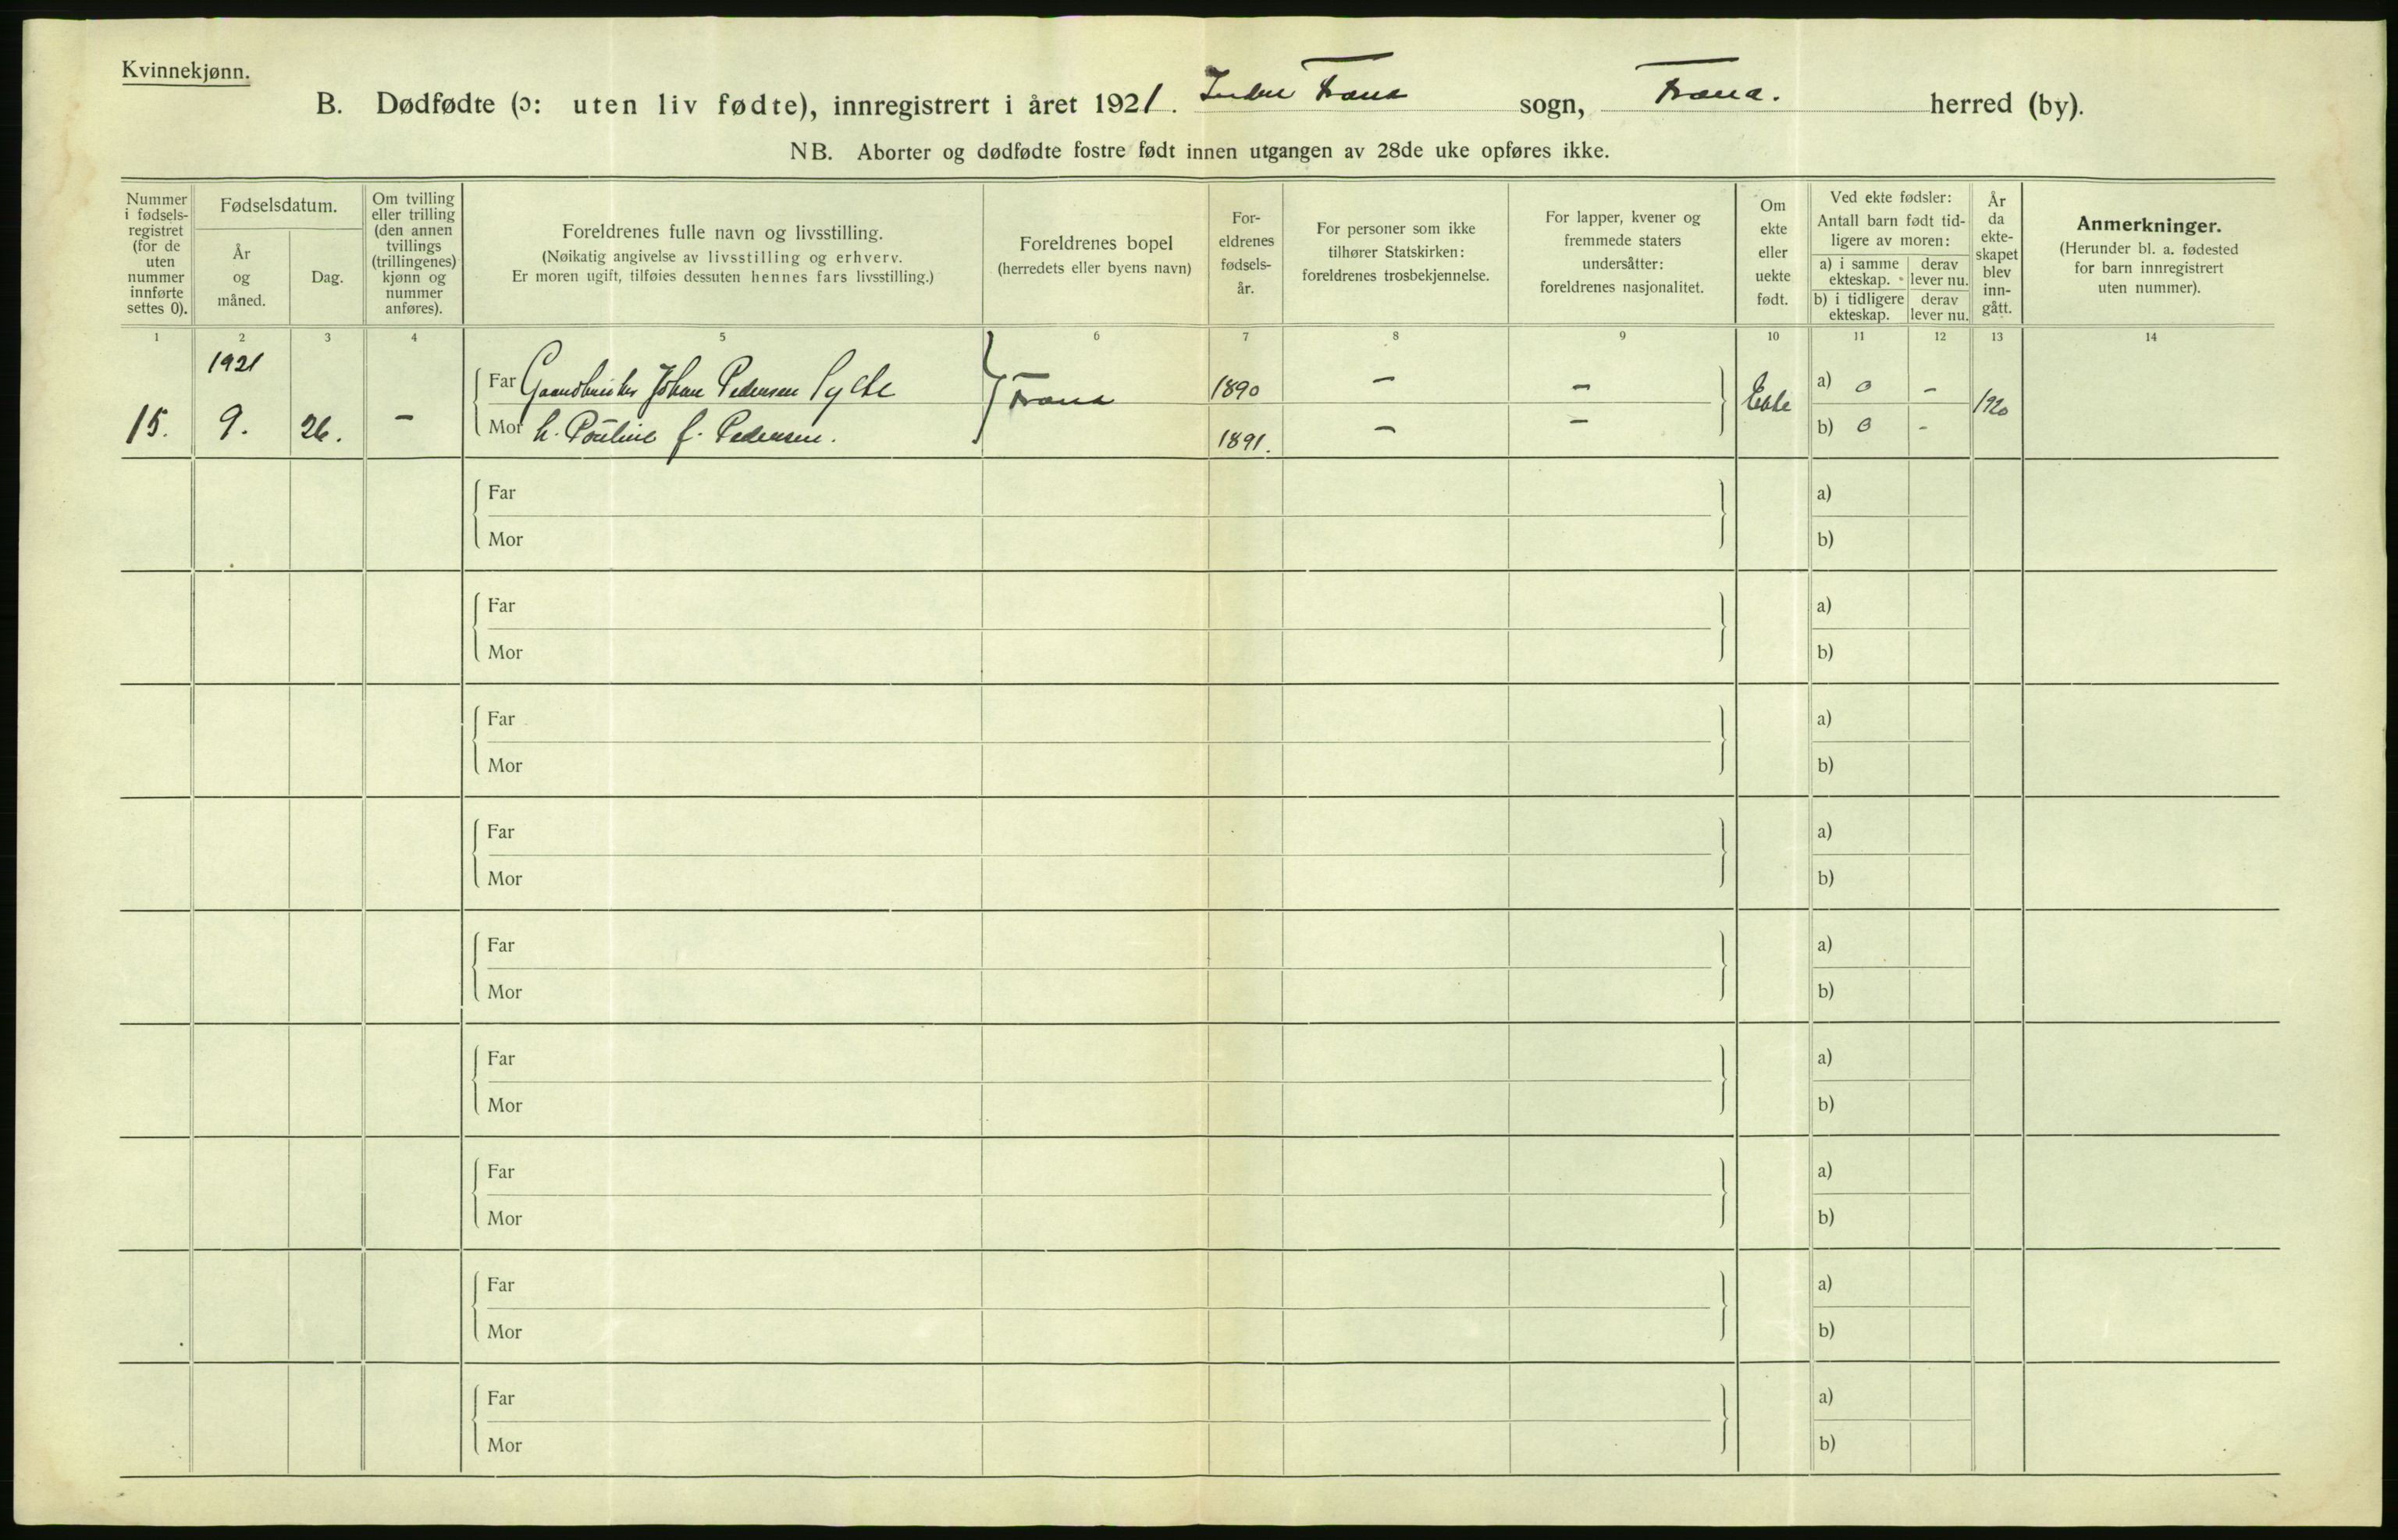 Kvinnekjønn.
B. Dødfødte (ɔ: uten liv fødte), innregistrert i året 1921. Indre Fræna sogn, Fræna. herred (by).
NB. Aborter og dødfødte fostre født innen utgangen av 28de uke opføres ikke.
Nummer i fødsels-registret (for de uten nummer innførte settes 0).
Fødselsdatum.
År og måned.
Dag.
Om tvilling eller trilling (den annen tvillings (trillingenes) kjønn og nummer anføres).
Foreldrenes fulle navn og livsstilling.
(Nøikatig angivelse av livsstilling og erhverv.
Er moren ugift, tilføies dessuten hennes fars livsstilling.)
Foreldrenes bopel
(herredets eller byens navn)
For-eldrenes fødsels-år.
For personer som ikke tilhører Statskirken: foreldrenes trosbekjennelse.
For lapper, kvener og fremmede staters undersåtter: foreldrenes nasjonalitet.
Om ekte eller uekte født.
Ved ekte fødsler:
Antall barn født tid-ligere av moren:
a) i samme ekteskap. derav lever nu.
b) i tidligere ekteskap. derav lever nu.
År da ekte-skapet blev inn-gått.
Anmerkninger.
(Herunder bl. a. fødested for barn innregistrert uten nummer).
1 2 3 4 5 6 7 8 9 10 11 12 13 14
1921
Far Gaardbruker Johan Pedersen Sylte Fræna 1890 – – Ekte a) 0 – 1920
15. 9. 26. – Mor h. Pauline f. Pedersen. 1891. – – b) 0 -
Far a)
Mor b)
Far a)
Mor b)
Far a)
Mor b)
Far a)
Mor b)
Far a)
Mor b)
Far a)
Mor b)
Far a)
Mor b)
Far a)
Mor b)
Far a)
Mor b)